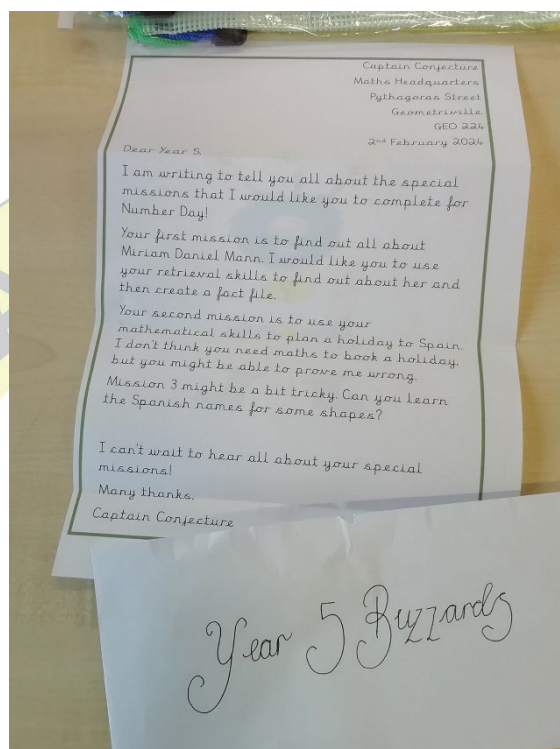 Captain Conjecture
Maths Headquarters
Pythagoras Street
Geometriville
GEO 224
2nd February 2024
Dear Year 5,
I am writing to tell you all about the special
missions that I would like you to complete for
Number Day!
Your first mission is to find out all about
Miriam Daniel Mann. I would like you to use
your retrieval skills to find out about her and
then create a fact file.
Your second mission is to use your
mathematical skills to plan a holiday to Spain.
I don't think you need maths to book a holiday,
but you might be able to prove me wrong.
Mission 3 might be a bit tricky. Can you learn
the Spanish names for some shapes?
I can't wait to hear all about your special
missions!
Many thanks,
Captain Conjecture
Year 5 Buzzards